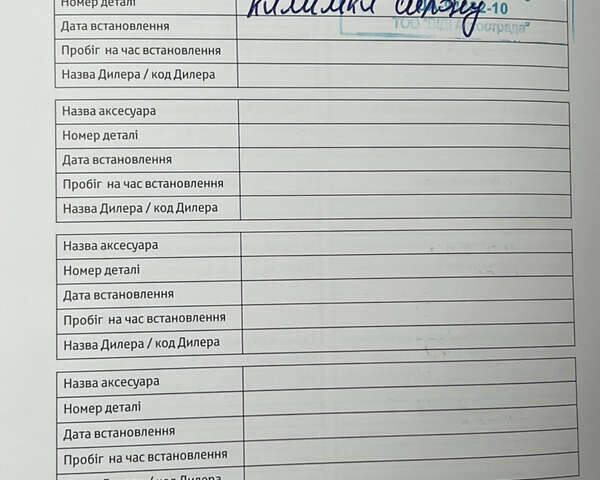 Номер деталі
килимки салону
2-10
Дата встановлення
Пробіг на час встановлення
Назва Дилера / код Дилера
Назва аксесуара
Номер деталі
Дата встановлення
Пробіг на час встановлення
Назва Дилера / код Дилера
Назва аксесуара
Номер деталі
Дата встановлення
Пробіг на час встановлення
Назва Дилера / код Дилера
Назва аксесуара
Номер деталі
Дата встановлення
Пробіг на час встановлення